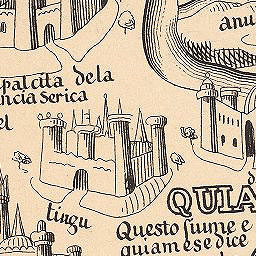 anu
palcita dela
ncia Serica
el
tingu
d
QUIA
Questo fiume e
quiam e se dice